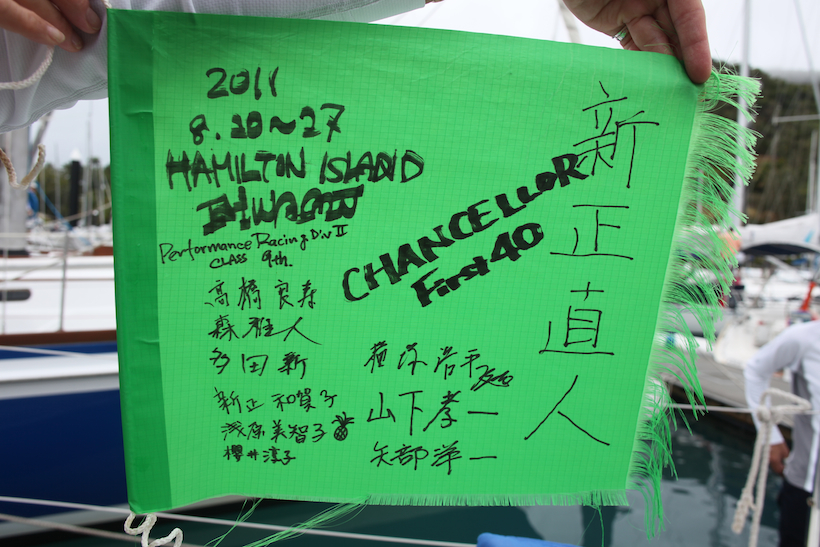 2011
8.20~27
HAMILTON ISLAND
Performance Racing Div II
CLASS 9th.
CHANCELLOR
First 40
新正直人
高橋良寿
森雅人
多田新
新正和賀子
浅原美智子
櫻井淳子
浩平
山下孝一
矢部洋一